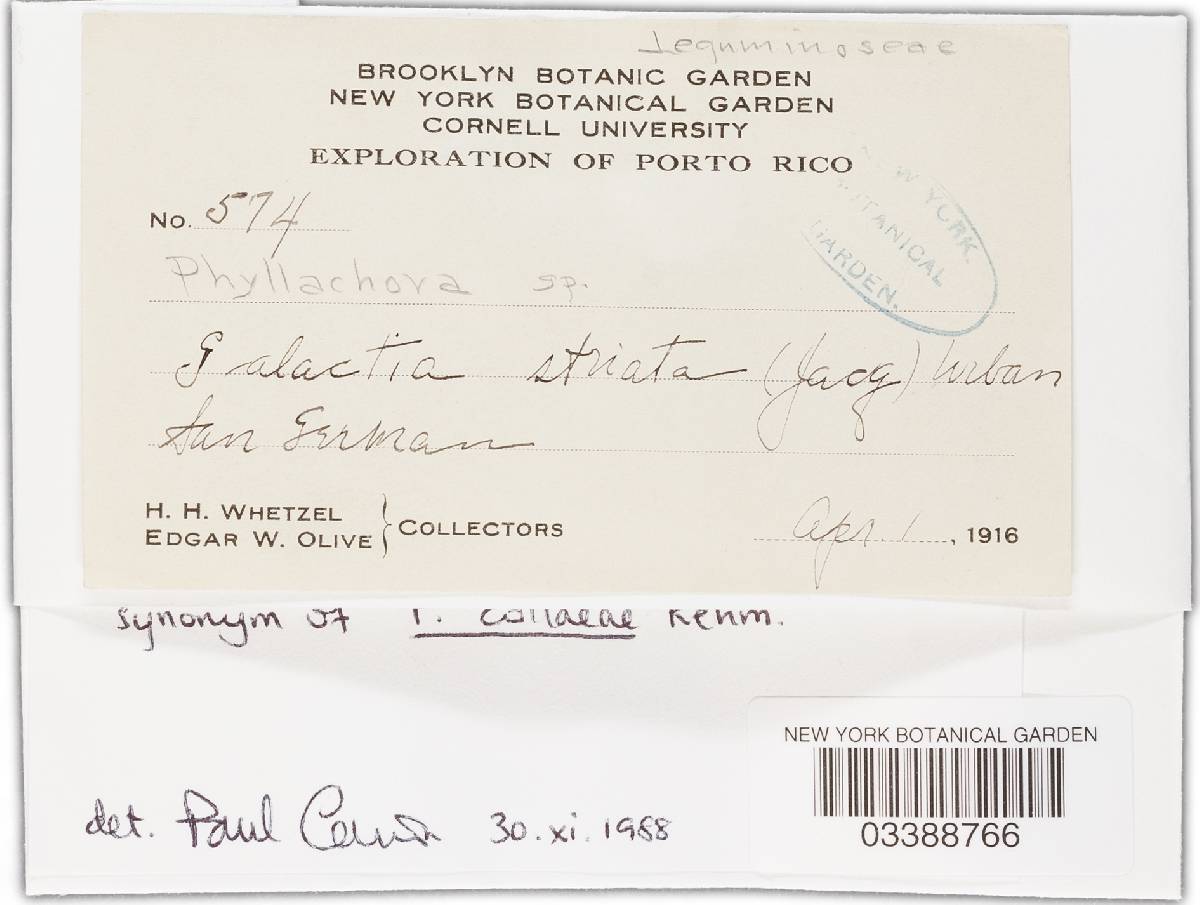 Leguminoseae
BROOKLYN BOTANIC GARDEN
NEW YORK BOTANICAL GARDEN
CORNELL UNIVERSITY
EXPLORATION OF PORTO RICO
NEW YORK
BOTANICAL
GARDEN.
No. 574
Phyllachora sp.
Galactia striata (Jacq) Urban
San German
H. H. WHETZEL
EDGAR W. OLIVE } COLLECTORS
Apr. 1, 1916
synonym of collaeae
det. Paul 30.xi.1988
NEW YORK BOTANICAL GARDEN
03388766